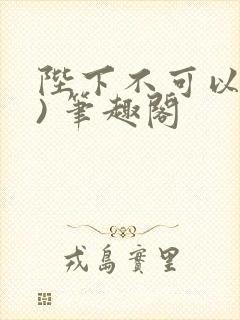 陛下不可以
)筆趣閣
戎島實里